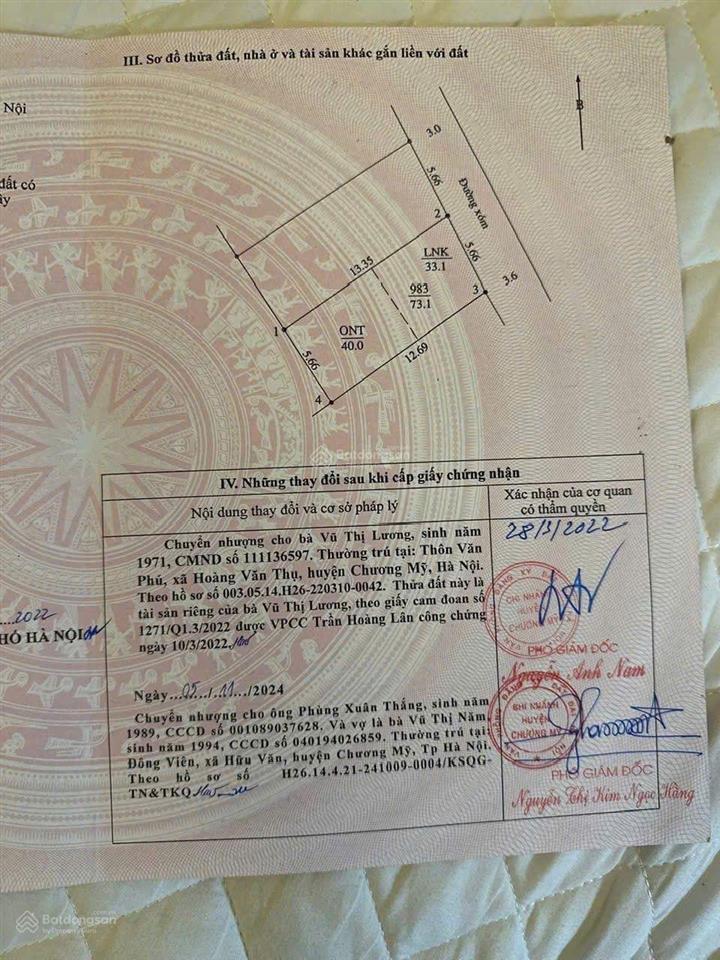 III. Sơ đồ thửa đất, nhà ở và tài sản khác gắn liền với đất
Nội
đất có
B
3.0
5.66
Đường xóm
2
LNK
33.1
5.66
13.35
983
73.1
3
3.6
1
ONT
40.0
12.69
5.66
4
Batdongsan
IV. Những thay đổi sau khi cấp giấy chứng nhận
Nội dung thay đổi và cơ sở pháp lý
Xác nhận của cơ quan
có thẩm quyền
Chuyển nhượng cho bà Vũ Thị Lương, sinh năm
1971, CMND số 111136597. Thường trú tại: Thôn Văn
Phú, xã Hoàng Văn Thụ, huyện Chương Mỹ, Hà Nội.
Theo hồ sơ số 003.05.14.H26-220310-0042. Thửa đất này là
tài sản riêng của bà Vũ Thị Lương, theo giấy cam đoan số
1271/Q1.3/2022 được VPCC Trần Hoàng Lân công chứng
ngày 10/3/2022.
28/3/2022
CHI NHÁNH
HUYỆN
CHƯƠNG MỸ
PHÓ GIÁM ĐỐC
Nguyễn Anh Nam
...2022
HỐ HÀ NỘI
Ngày...05.../11.../2024
Chuyển nhượng cho ông Phùng Xuân Thắng, sinh năm
1989, CCCD số 001089037628. Và vợ là bà Vũ Thị Năm,
sinh năm 1994, CCCD số 040194026859. Thường trú tại:
Đồng Viên, xã Hữu Văn, huyện Chương Mỹ, Tp Hà Nội.
Theo hồ sơ số H26.14.4.21-241009-0004/KSQG-
TN&TKQ
CHI NHÁNH
HUYỆN
CHƯƠNG MỸ
PHÓ GIÁM ĐỐC
Nguyễn Thị Kim Ngọc Hằng
Batdongsan
by PropertyGuru